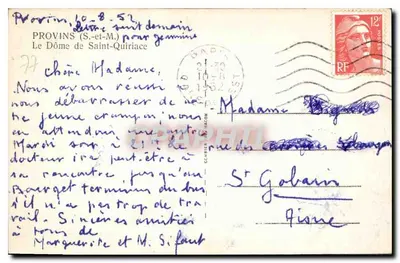 Provins, 10-8-52
lettre suit demain
pour Germaine
PROVINS (S.-et-M.)
Le Dôme de Saint-Quiriace
77
12F
RF
Chère Madame,
Nous avons réussi
nous débarrasser de no-
tre jeune
attendons une autre
Mardi soir à 21h le
docteur ira peut-être à
sa rencontre jusqu'au
Bourget terminus du bus
s'il n'a pas trop de tra-
vail. Sincères amitiés
à tous de
Marguerite et M. Sifaut
Madame
rue des
St Gobain
Aisne